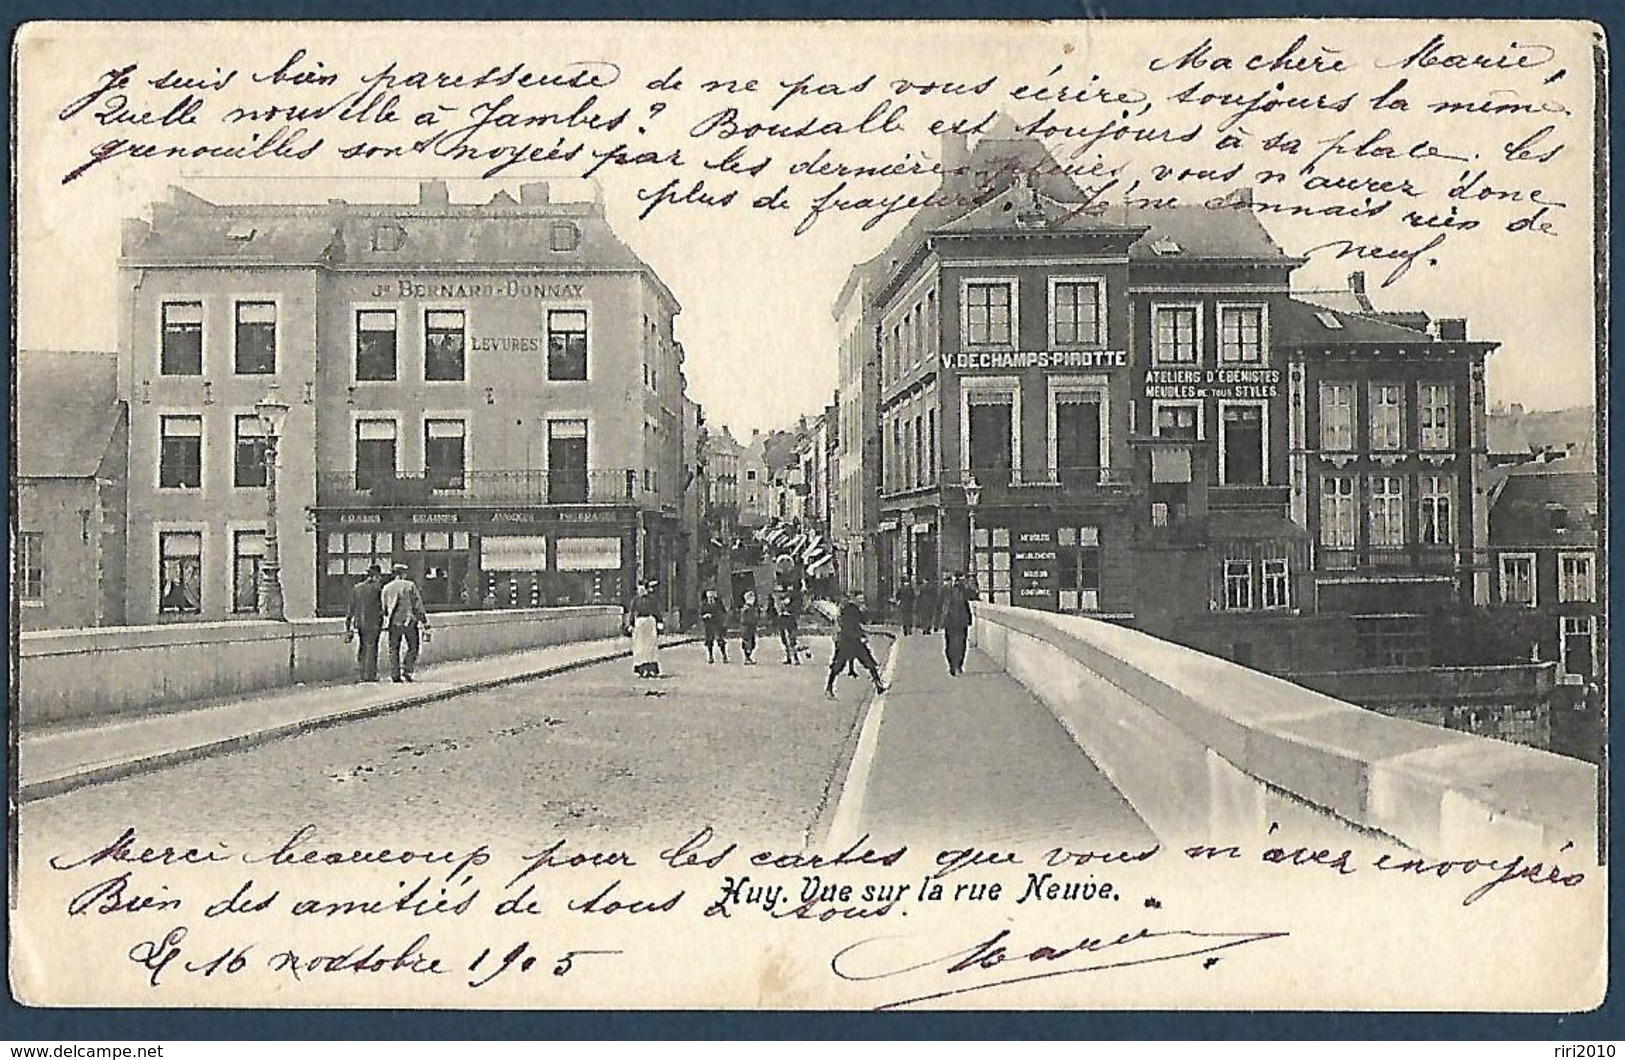 Ma chère Marie,
Je suis bien paresseuse de ne pas vous écrire, toujours la même
Quelle nouvelle à Jambes? Bousalle est toujours à sa place. Les
grenouilles sont noyées par les dernières pluies, vous n'aurez donc
plus de frayeurs. Je ne connais rien de
neuf.
Jh BERNARD-DONNAY
LEVURES
V. DECHAMPS-PIROTTE
ATELIERS D'ÉBÉNISTES
MEUBLES DE TOUS STYLES.
GRAINES
MEUBLES
Merci beaucoup pour les cartes que vous m'avez envoyées
Bien des amitiés de tous à tous.
Huy. Vue sur la rue Neuve.
Le 16 octobre 1905
Maria
riri2010